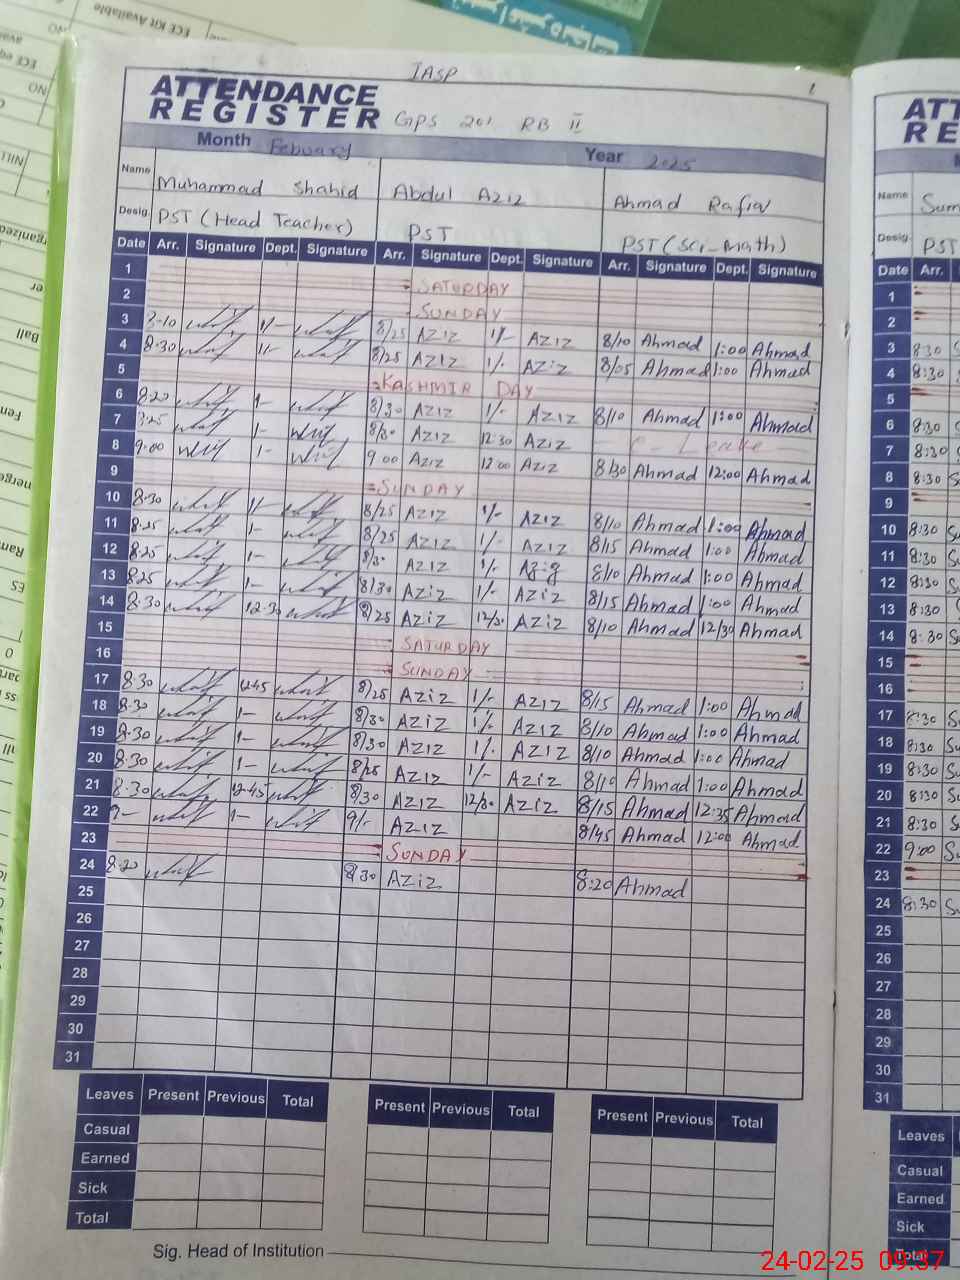 ECE Kit Available
NO
IASP
ATTENDANCE
REGISTER GPS 201 RB II
Month Febuary Year 2025
Name Muhammad Shahid Abdul Aziz Ahmad
Desig. PST (Head Teacher) PST PST (Sci-Math)
Date Arr. Signature Dept. Signature Arr. Signature Dept. Signature Arr. Signature Dept. Signature
1 SATURDAY
2 SUNDAY
3 8/25 AZIZ 1/- AZIZ 8/10 Ahmad 1:00 Ahmad
4 8:30 1/- 8/25 AZIZ 1/- AZIZ 8/05 Ahmad 1:00 Ahmad
5 KASHMIR DAY
6 8:20 1- 8/30 AZIZ 1/- AZIZ 8/10 Ahmad 1:00 Ahmad
7 1- 8/30 AZIZ 12:30 AZIZ C-Leave
8 9:00 1- 9:00 AZIZ 12:00 AZIZ 8/30 Ahmad 12:00 Ahmad
9 SUNDAY
10 8:30 1/ 8/25 AZIZ 1/- AZIZ 8/10 Ahmad 1:00 Ahmad
11 8:25 1- 8/25 AZIZ 1/- AZIZ 8/15 Ahmad 1:00 Ahmad
12 8:25 1- 8/30 AZIZ 1/- Aziz 8/10 Ahmad 1:00 Ahmad
13 8:25 1- 8/30 AZIZ 1/- AZIZ 8/15 Ahmad 1:00 Ahmad
14 8:30 12-30 8/25 AZIZ 12/30 AZIZ 8/10 Ahmad 12/30 Ahmad
15 SATURDAY
16 SUNDAY
17 8:30 12:45 8/25 AZIZ 1/- AZIZ 8/15 Ahmad 1:00 Ahmad
18 8:30 1- 8/30 AZIZ 1/- AZIZ 8/10 Ahmad 1:00 Ahmad
19 8:30 1- 8/30 AZIZ 1/- AZIZ 8/10 Ahmad 1:00 Ahmad
20 8:30 1- 8/25 AZIZ 1/- AZIZ 8/10 Ahmad 1:00 Ahmad
21 8:30 12-45 8/30 AZIZ 12/30 AZIZ 8/15 Ahmad 12:35 Ahmad
22 9- 1- 9/- AZIZ 8/45 Ahmad 12:00 Ahmad
23 SUNDAY
24 8:20 8:30 AZIZ 8:20 Ahmad
25
26
27
28
29
30
31
Leaves Present Previous Total Present Previous Total Present Previous Total
Casual
Earned
Sick
Total
Sig. Head of Institution
ATT
RE
Name Sum
Desig. PST
Date Arr.
1
2
3 8:30
4 8:30
5
6 8:30
7 8:30
8 8:30
9
10 8:30
11 8:30
12 8:30
13 8:30
14 8:30
15
16
17 8:30
18 8:30
19 8:30
20 8:30
21 8:30
22 9:00
23
24 8:30
25
26
27
28
29
30
31
Leaves
Casual
Earned
Sick
Total
24-02-25 09:37